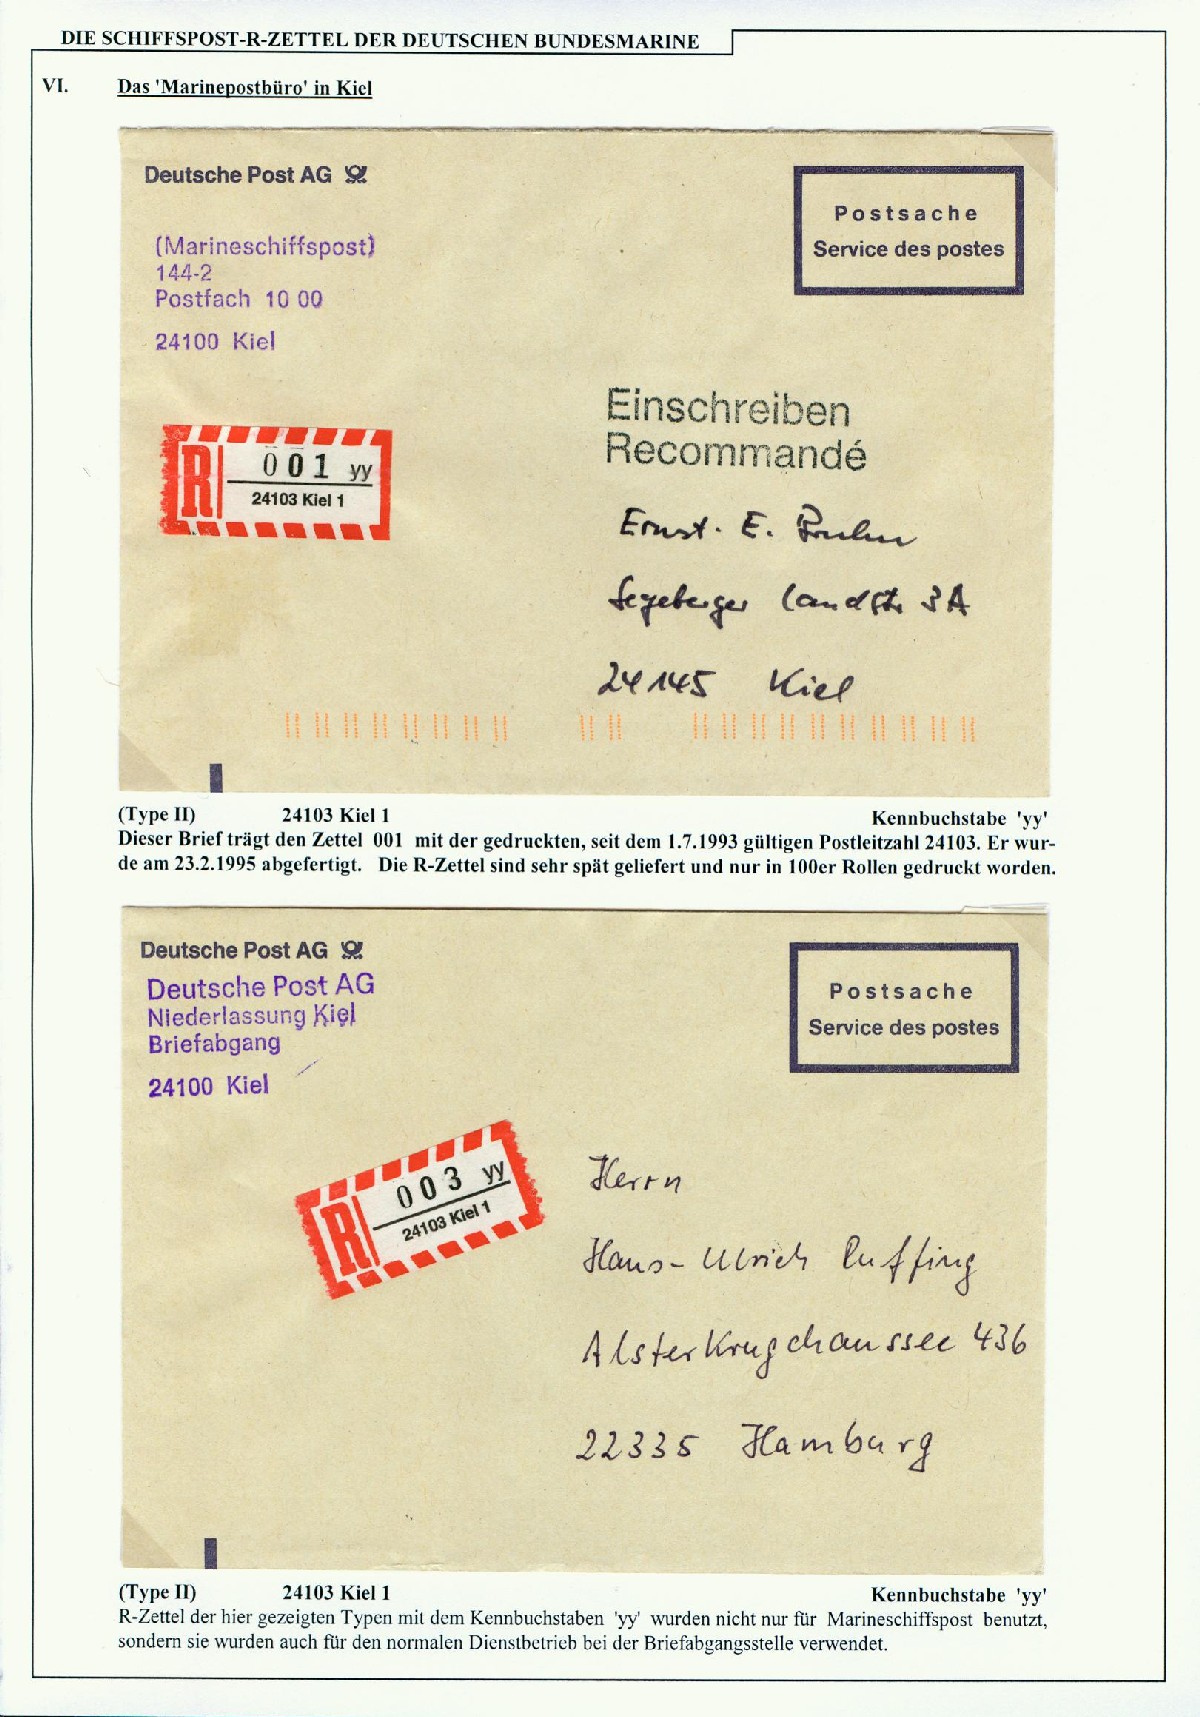 DIE SCHIFFSPOST-R-ZETTEL DER DEUTSCHEN BUNDESMARINE
VI. Das 'Marinepostbüro' in Kiel
Deutsche Post AG
Postsache
Service des postes
(Marineschiffspost)
144-2
Postfach 10 00
24100 Kiel
Einschreiben
Recommandé
R 001 yy
24103 Kiel 1
Ernst. E. Bruhn
Segeberger Landstr. 3A
24145 Kiel
(Type II) 24103 Kiel 1 Kennbuchstabe 'yy'
Dieser Brief trägt den Zettel 001 mit der gedruckten, seit dem 1.7.1993 gültigen Postleitzahl 24103. Er wur-
de am 23.2.1995 abgefertigt. Die R-Zettel sind sehr spät geliefert und nur in 100er Rollen gedruckt worden.
Deutsche Post AG
Postsache
Service des postes
Deutsche Post AG
Niederlassung Kiel
Briefabgang
24100 Kiel
R 003 yy
24103 Kiel 1
Herrn
Hans-Ulrich Ruffing
Alsterkrugchaussee 436
22335 Hamburg
(Type II) 24103 Kiel 1 Kennbuchstabe 'yy'
R-Zettel der hier gezeigten Typen mit dem Kennbuchstaben 'yy' wurden nicht nur für Marineschiffspost benutzt,
sondern sie wurden auch für den normalen Dienstbetrieb bei der Briefabgangsstelle verwendet.